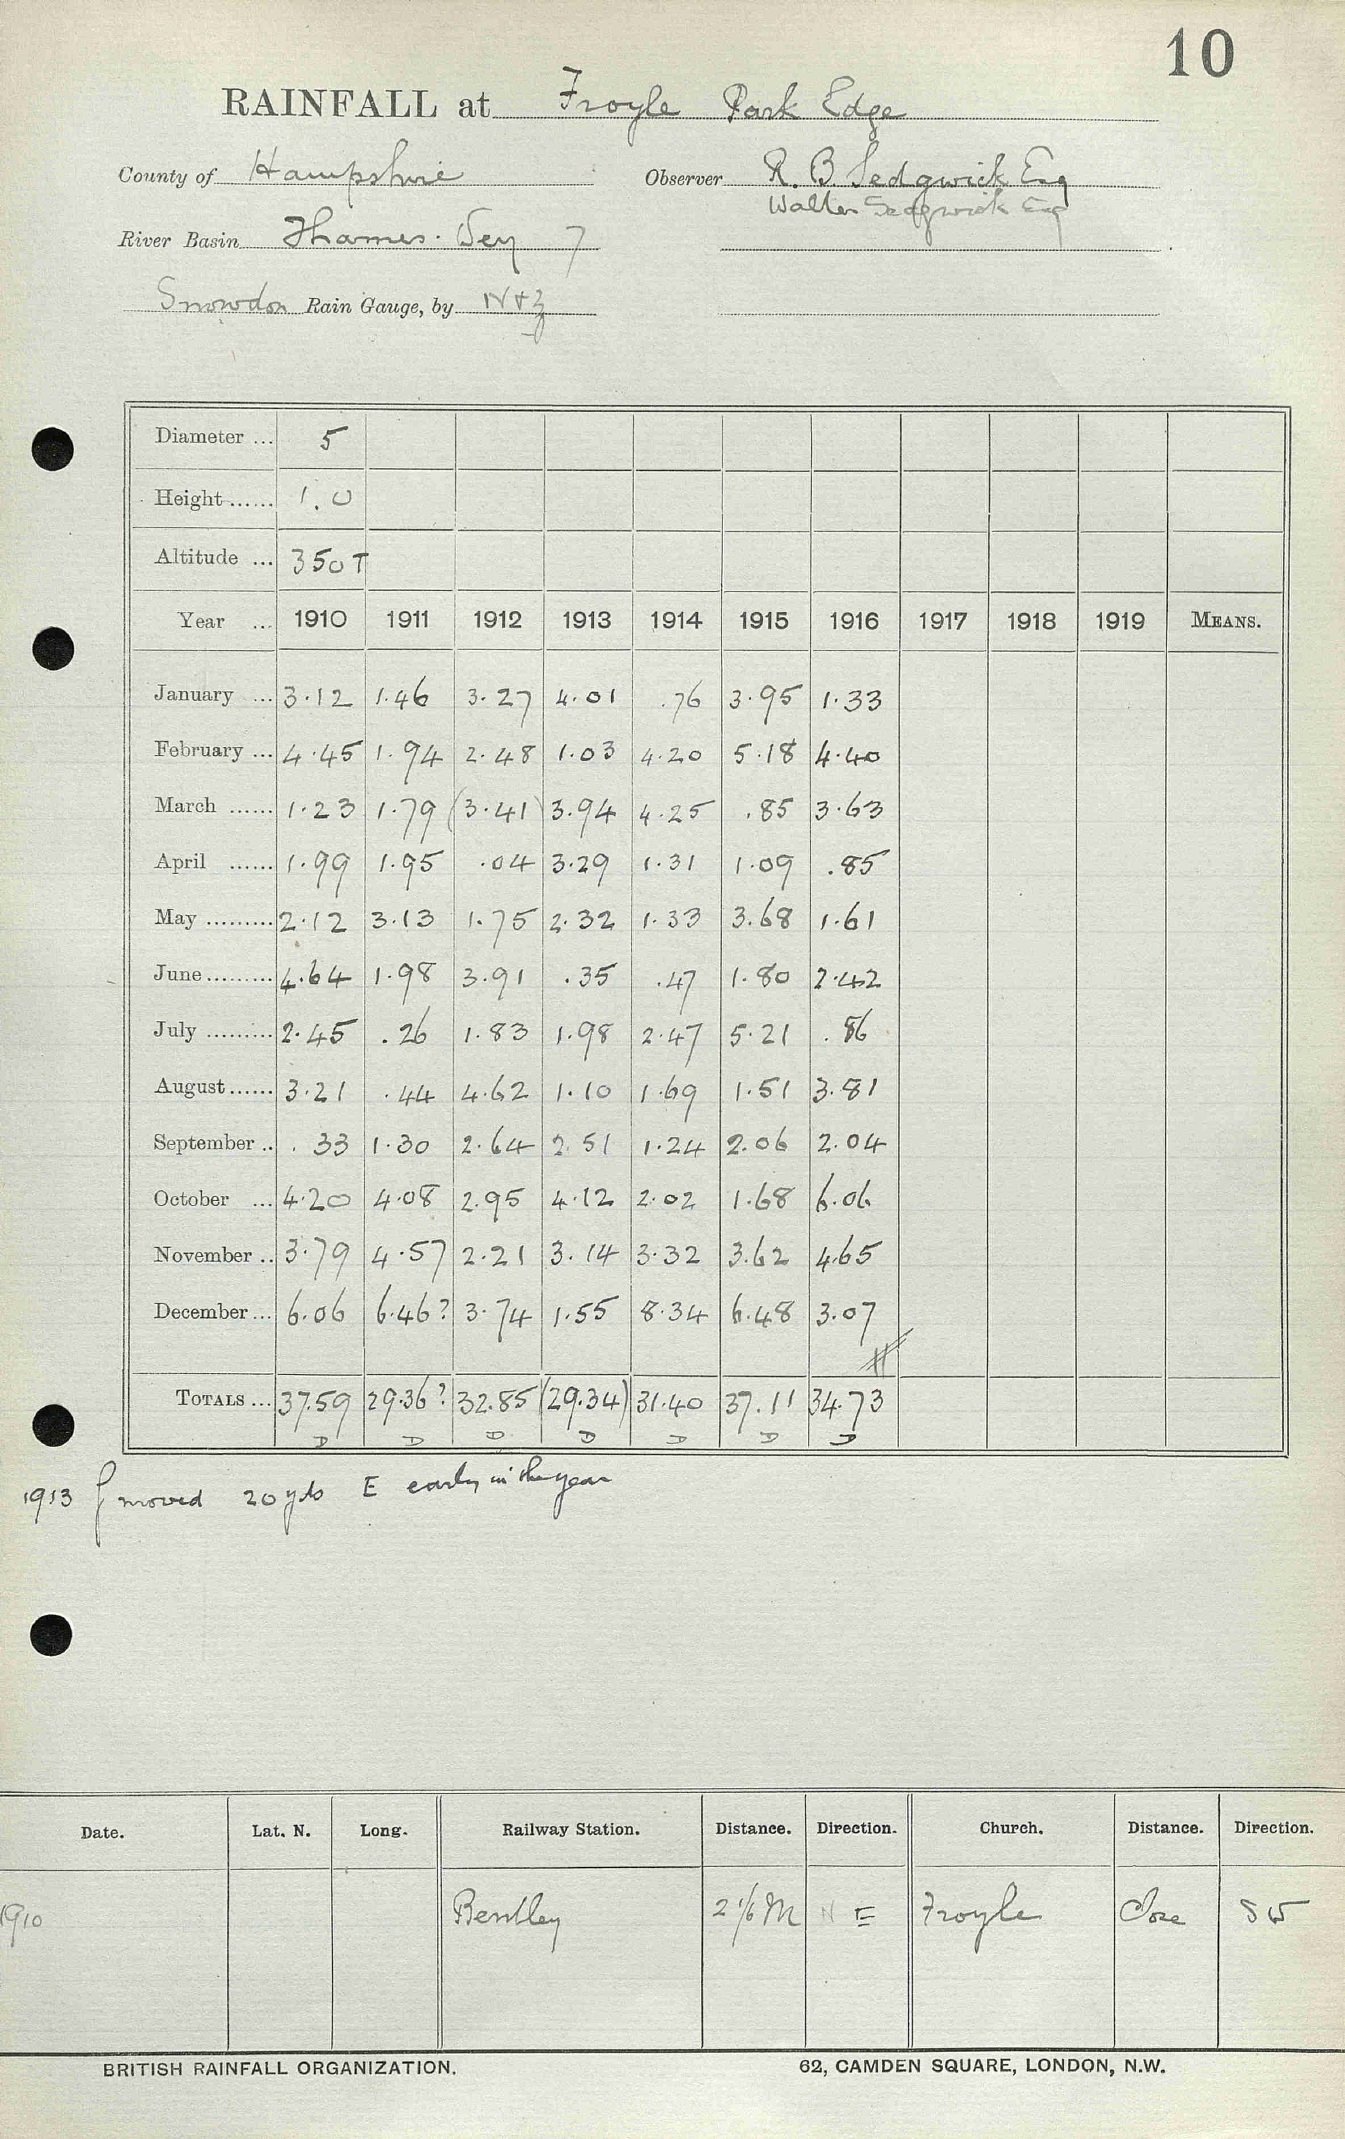 10
RAINFALL at Froyle Park Edge
County of Hampshire Observer R. B. Sedgwick Esq
Walter Sedgwick Esq
River Basin Thames. Wey 7
Snowdon Rain Gauge, by N+Z
Diameter ... 5
Height ...... 1.0
Altitude ... 350T
Year ... 1910 1911 1912 1913 1914 1915 1916 1917 1918 1919 MEANS.
January ... 3.12 1.46 3.27 4.01 .76 3.95 1.33
February ... 4.45 1.94 2.48 1.03 4.20 5.18 4.40
March ...... 1.23 1.79 (3.41) 3.94 4.25 .85 3.63
April ...... 1.99 1.95 .04 3.29 1.31 1.09 .85
May ......... 2.12 3.13 1.75 2.32 1.33 3.68 1.61
June ......... 4.64 1.98 3.91 .35 .47 1.80 2.42
July ......... 2.45 .26 1.83 1.98 2.47 5.21 .86
August ...... 3.21 .44 4.62 1.10 1.69 1.51 3.81
September .. .33 1.30 2.64 2.51 1.24 2.06 2.04
October ... 4.20 4.08 2.95 4.12 2.02 1.68 6.06
November .. 3.79 4.57 2.21 3.14 3.32 3.62 4.65
December ... 6.06 6.46? 3.74 1.55 8.34 6.48 3.07
TOTALS ... 37.59 29.36? 32.85 (29.34) 31.40 37.11 34.73
D D D D D D D
1913 moved 20 yds E early in the year
Date. Lat. N. Long. Railway Station. Distance. Direction. Church. Distance. Direction.
1910 Bentley 2 1/6 M E Froyle Close SW
BRITISH RAINFALL ORGANIZATION. 62, CAMDEN SQUARE, LONDON, N.W.